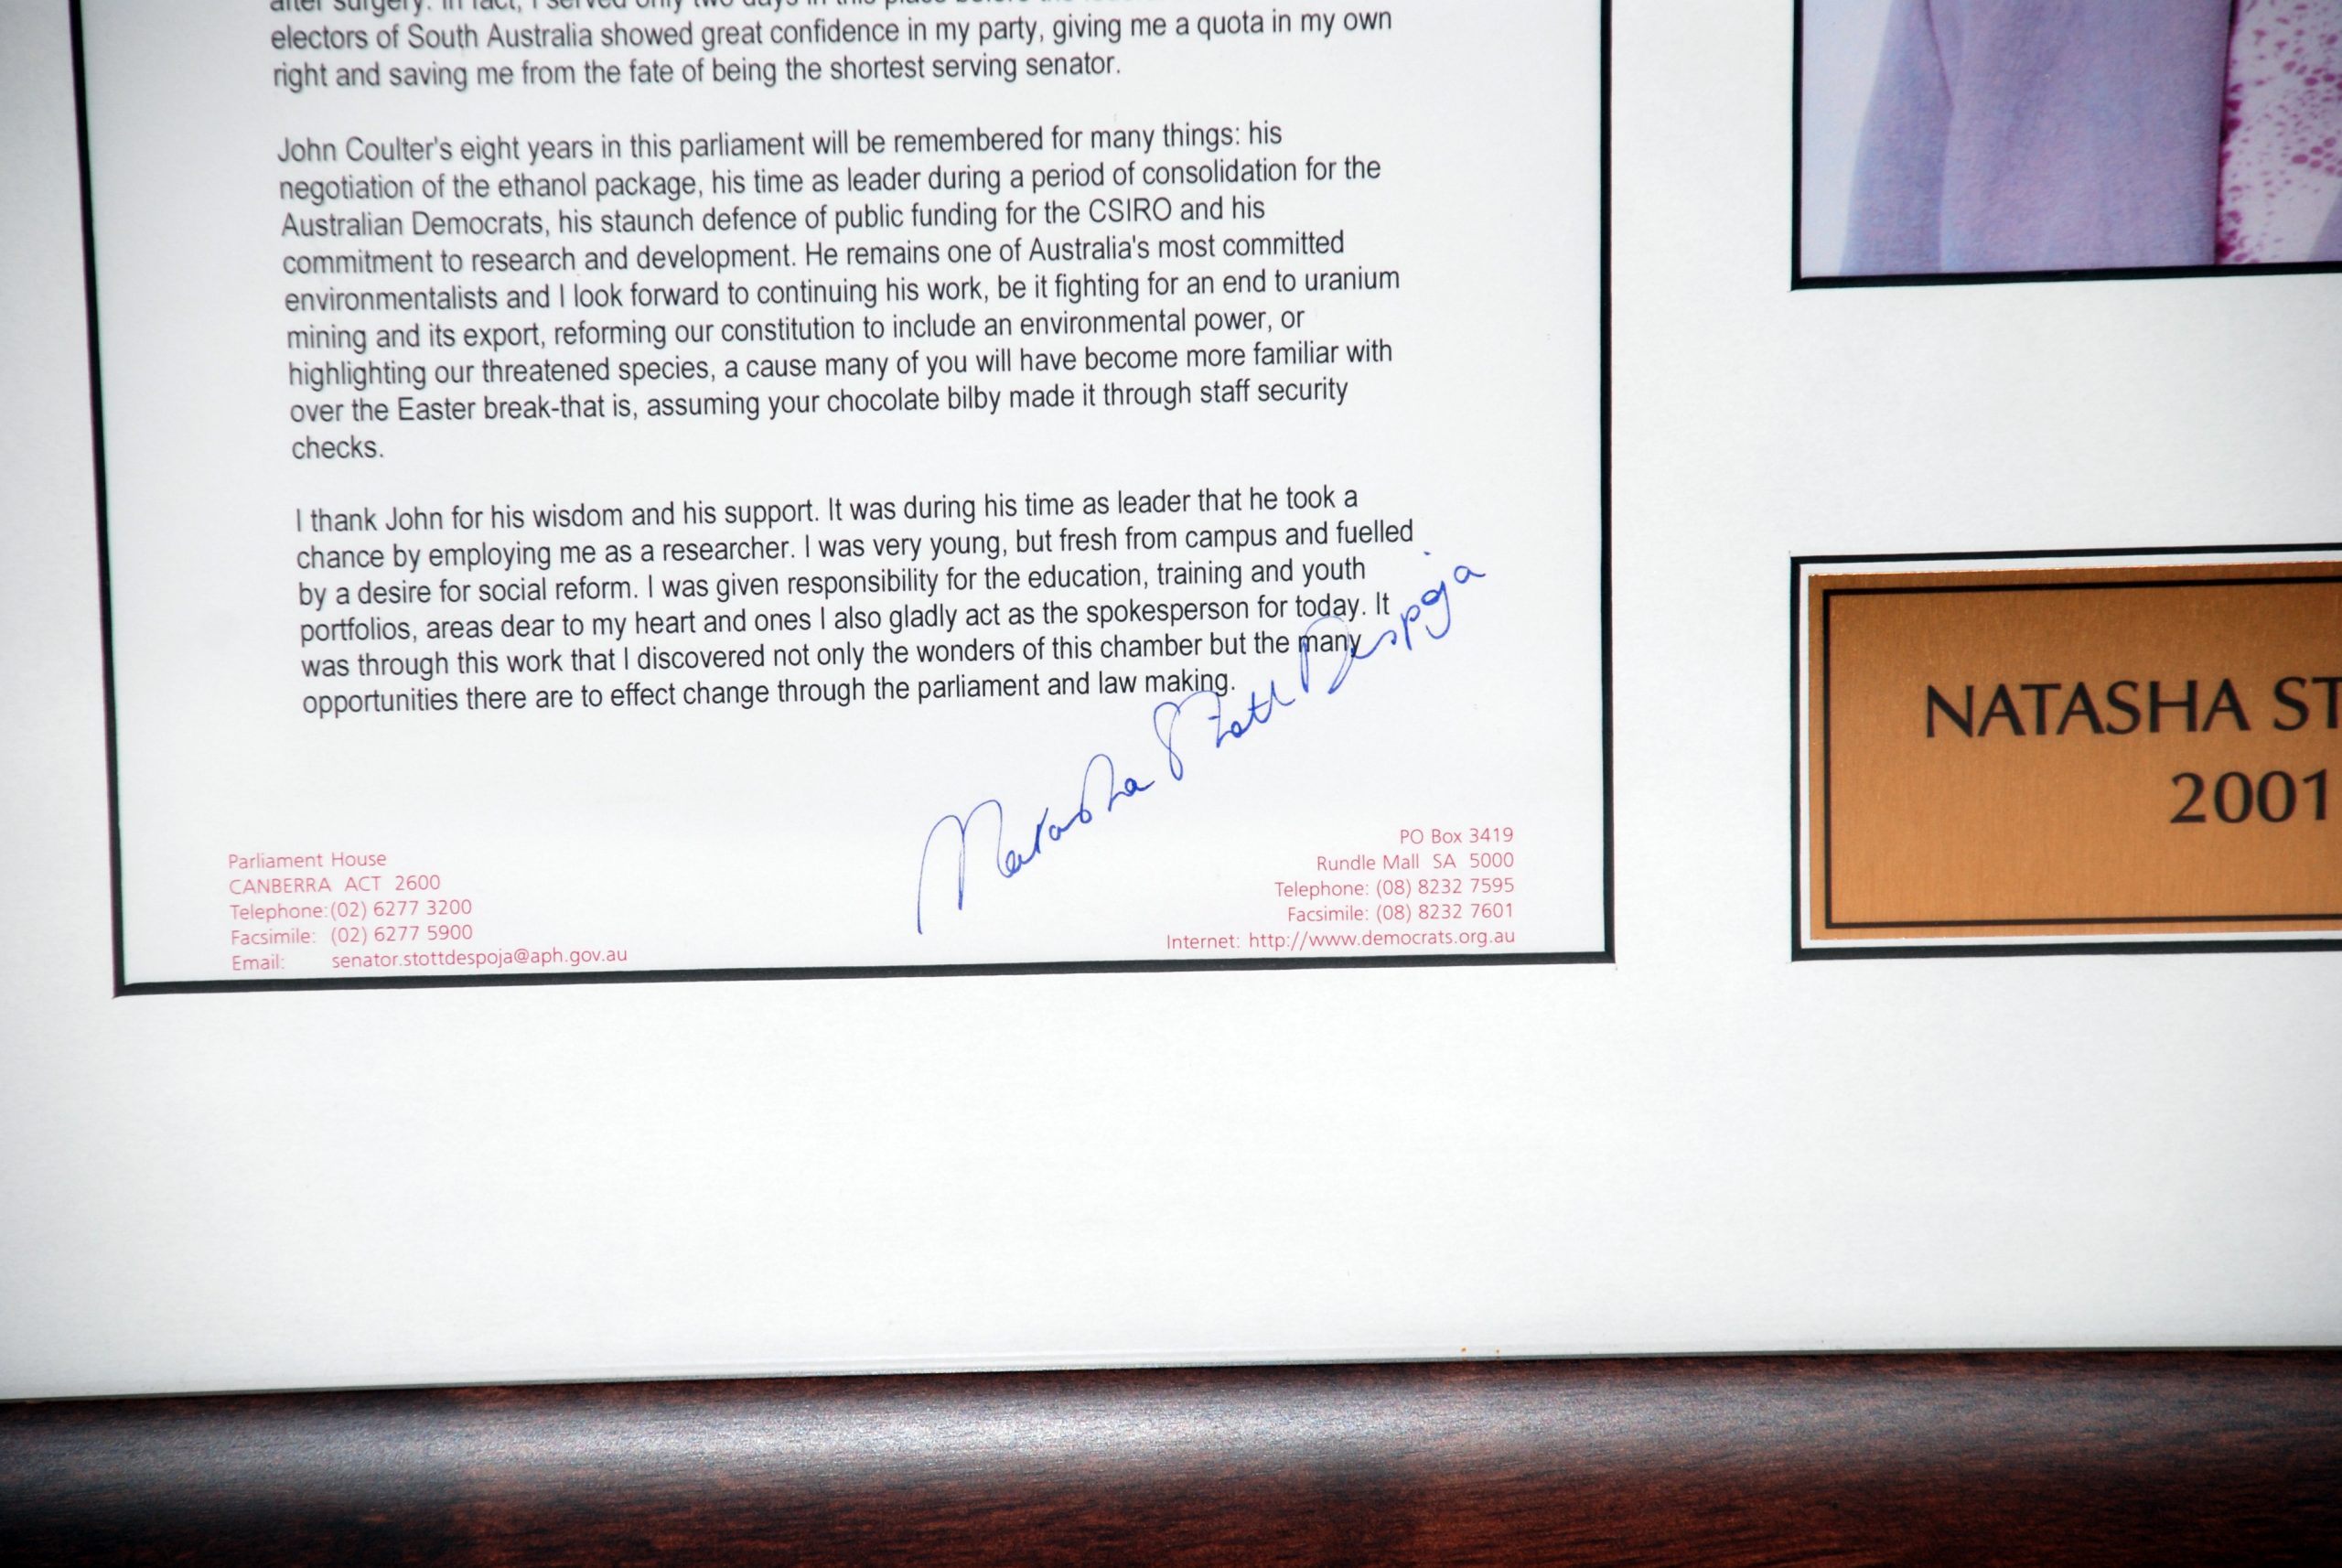 after surgery. In fact, I served only two days in this place before the
electors of South Australia showed great confidence in my party, giving me a quota in my own
right and saving me from the fate of being the shortest serving senator.
John Coulter's eight years in this parliament will be remembered for many things: his
negotiation of the ethanol package, his time as leader during a period of consolidation for the
Australian Democrats, his staunch defence of public funding for the CSIRO and his
commitment to research and development. He remains one of Australia's most committed
environmentalists and I look forward to continuing his work, be it fighting for an end to uranium
mining and its export, reforming our constitution to include an environmental power, or
highlighting our threatened species, a cause many of you will have become more familiar with
over the Easter break-that is, assuming your chocolate bilby made it through staff security
checks.
I thank John for his wisdom and his support. It was during his time as leader that he took a
chance by employing me as a researcher. I was very young, but fresh from campus and fuelled
by a desire for social reform. I was given responsibility for the education, training and youth
portfolios, areas dear to my heart and ones I also gladly act as the spokesperson for today. It
was through this work that I discovered not only the wonders of this chamber but the many
opportunities there are to effect change through the parliament and law making.
Natasha Stott Despoja
Parliament House
CANBERRA ACT 2600
Telephone: (02) 6277 3200
Facsimile: (02) 6277 5900
Email: senator.stottdespoja@aph.gov.au
PO Box 3419
Rundle Mall SA 5000
Telephone: (08) 8232 7595
Facsimile: (08) 8232 7601
Internet: http://www.democrats.org.au
NATASHA ST
2001